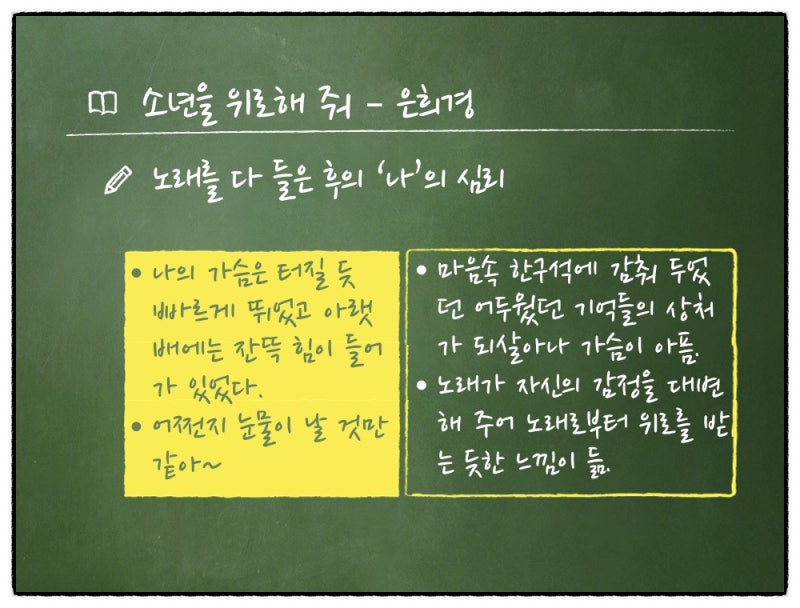 소년을 위로해 줘 - 은희경
노래를 다 들은 후의 '나'의 심리
• 나의 가슴은 터질 듯
빠르게 뛰었고 아랫
배에는 잔뜩 힘이 들어
가 있었다.
• 어쩐지 눈물이 날 것만
같아~
• 마음속 한구석에 감춰 두었
던 어두웠던 기억들의 상처
가 되살아나 가슴이 아픔.
• 노래가 자신의 감정을 대변
해 주어 노래로부터 위로를 받
는 듯한 느낌이 듦.